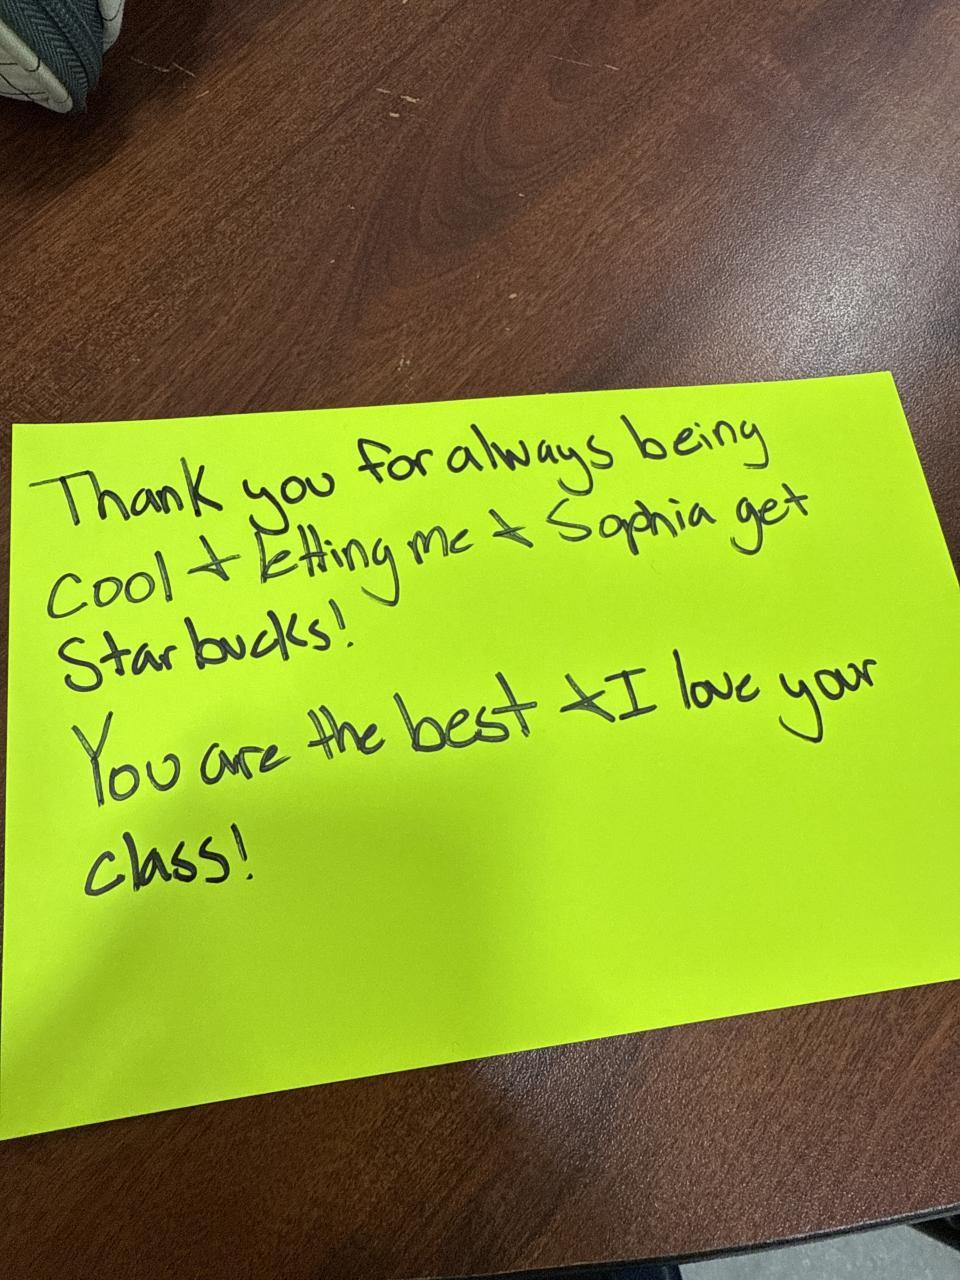 Thank you for always being
cool + letting me + Sophia get
Starbucks!
You are the best + I love your
class!